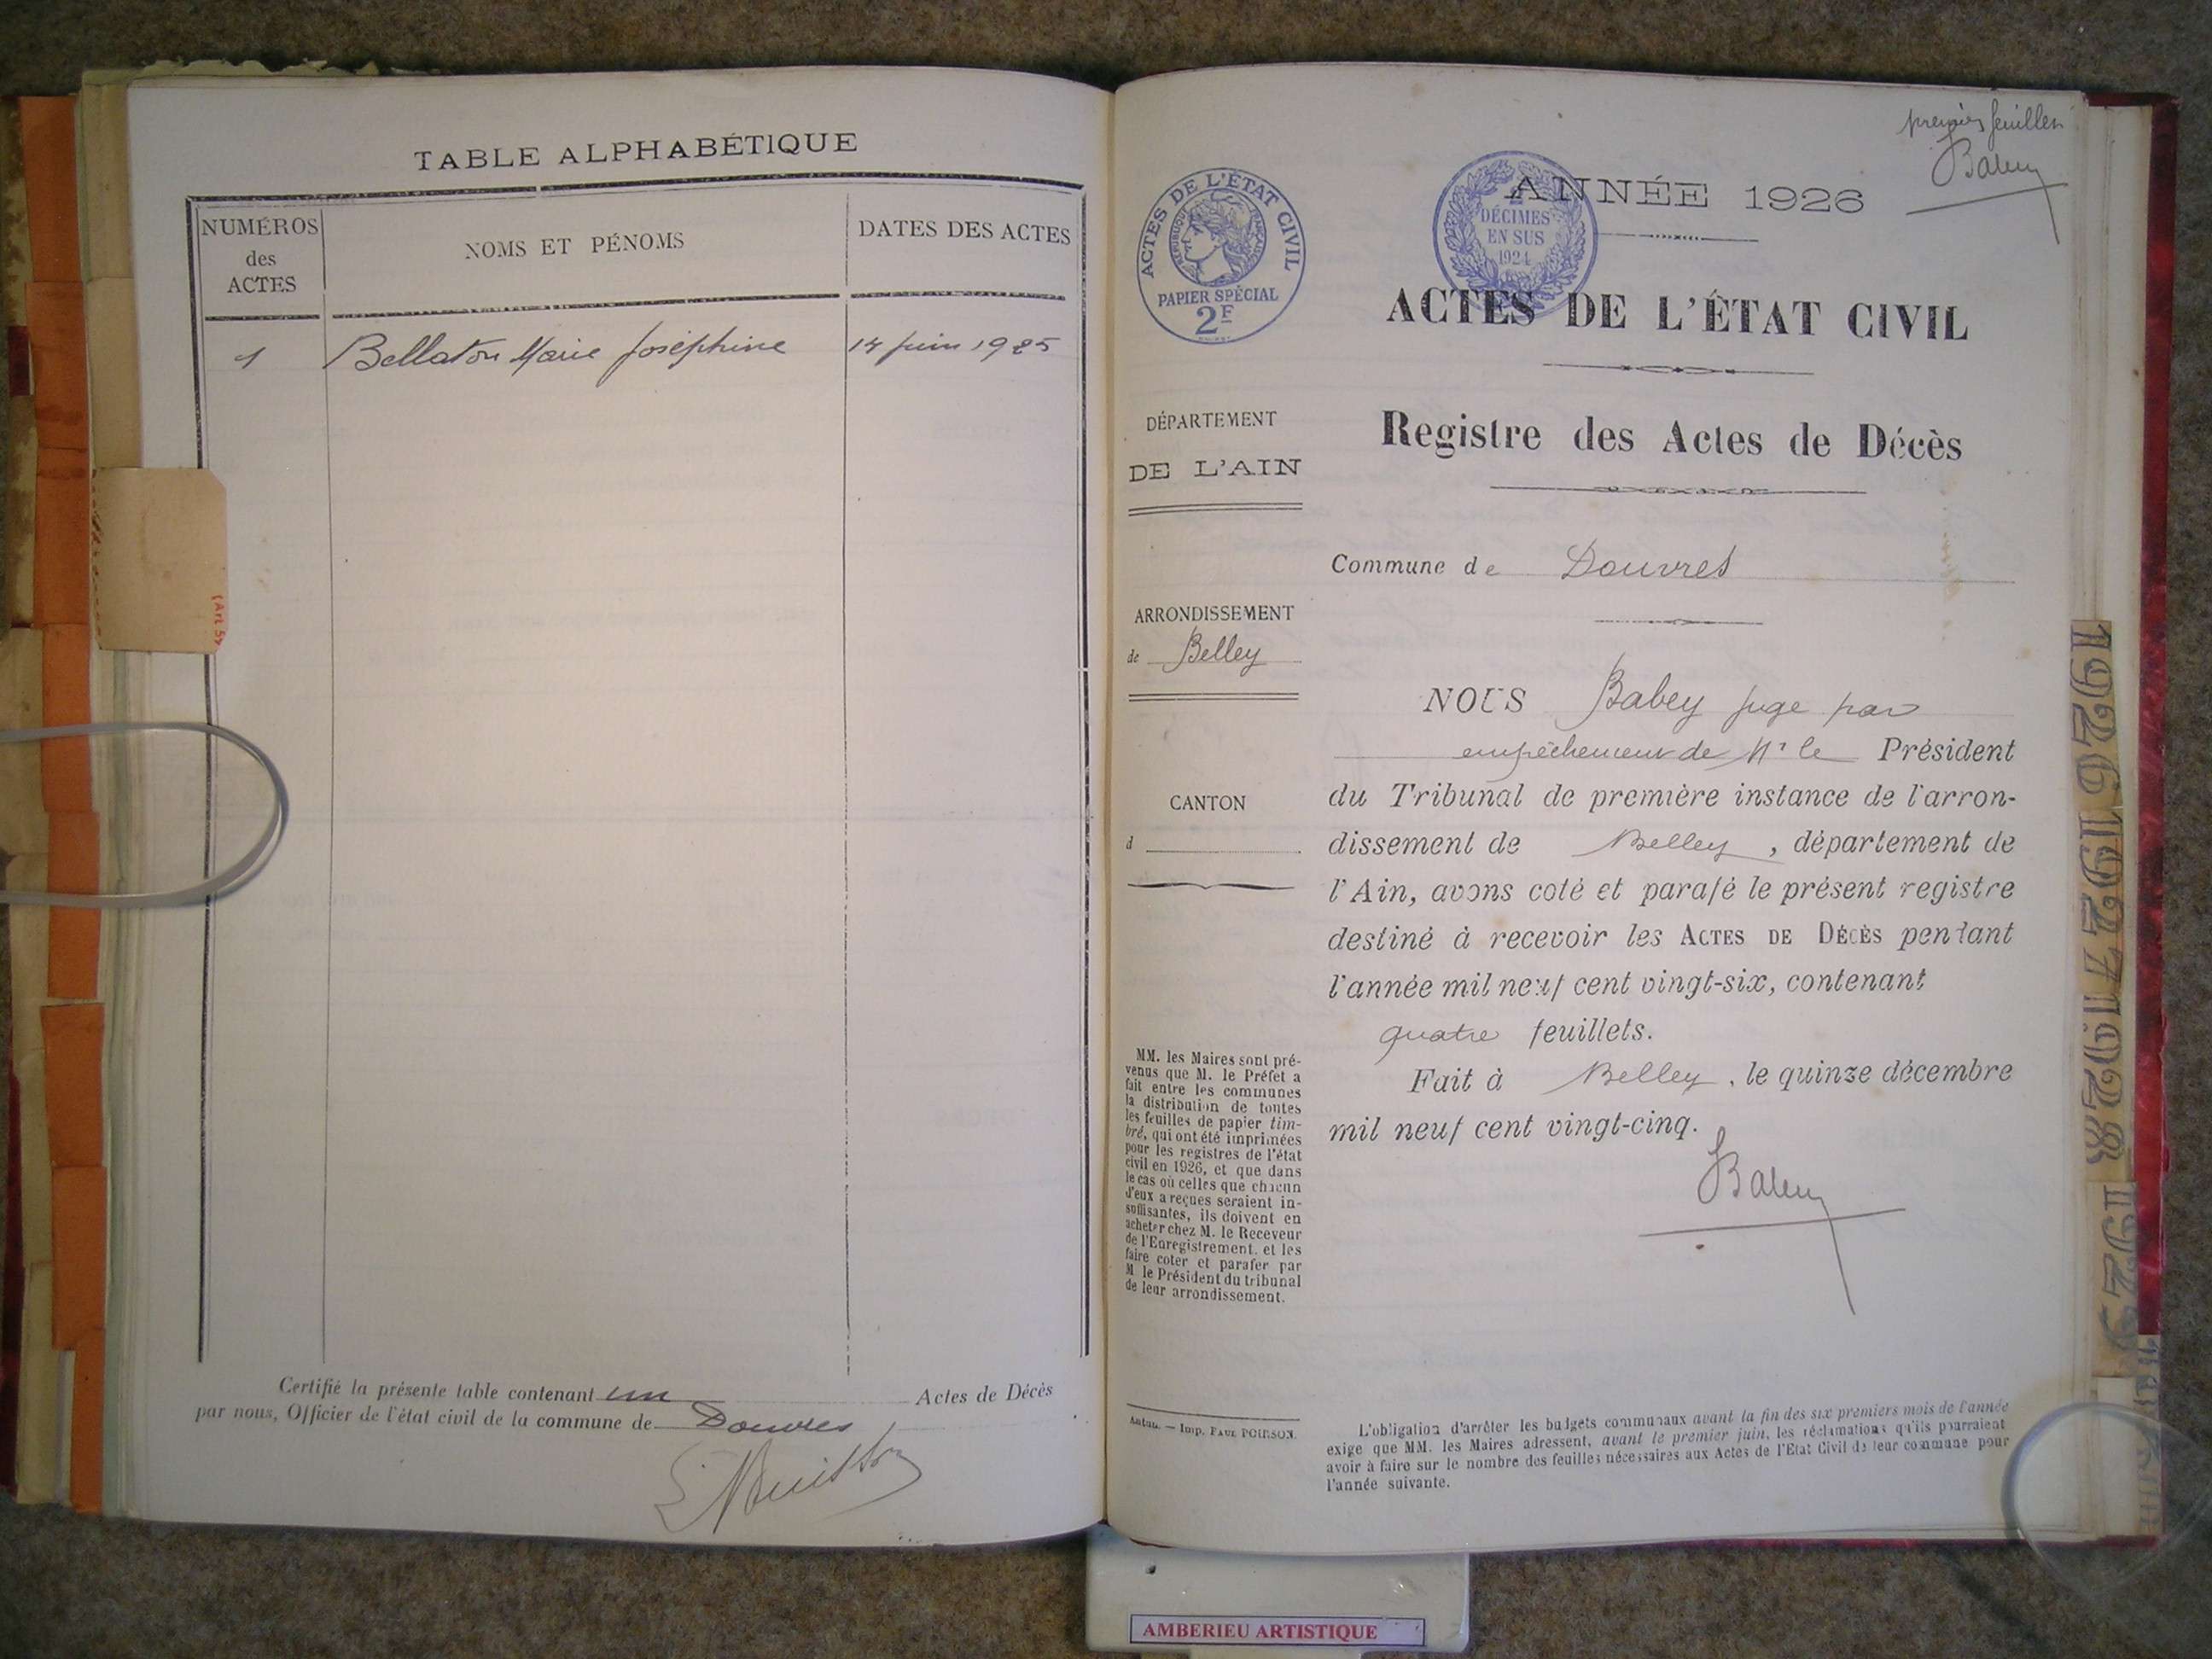 TABLE ALPHABÉTIQUE
NUMÉROS
des
ACTES
NOMS ET PÉNOMS
DATES DES ACTES
1
Bellaton Marie Joséphine
14 juin 1925
Certifié la présente table contenant un Actes de Décès
par nous, Officier de l'état civil de la commune de Douvres
(Art 57
premier feuillet
Babey
ACTES DE L'ÉTAT CIVIL
RÉPUBLIQUE FRANÇAISE
PAPIER SPÉCIAL
2F
2
DÉCIMES
EN SUS
1924
ANNÉE 1926
ACTES DE L'ÉTAT CIVIL
Registre des Actes de Décès
DÉPARTEMENT
DE L'AIN
ARRONDISSEMENT
de Belley
CANTON
d
MM. les Maires sont pré-
venus que M. le Préfet a
fait entre les communes
la distribution de toutes
les feuilles de papier tim-
bré, qui ont été imprimées
pour les registres de l'état
civil en 1926, et que dans
le cas où celles que chacun
d'eux a reçues seraient in-
suffisantes, ils doivent en
acheter chez M. le Receveur
de l'Enregistrement, et les
faire coter et parafer par
M le Président du tribunal
de leur arrondissement.
Commune de Douvres
NOUS Babey juge par
empêchement de Mr le Président
du Tribunal de première instance de l'arron-
dissement de Belley, département de
l'Ain, avons coté et parafé le présent registre
destiné à recevoir les ACTES DE DÉCÈS pendant
l'année mil neuf cent vingt-six, contenant
quatre feuillets.
Fait à Belley, le quinze décembre
mil neuf cent vingt-cinq.
Babey
Autun. — Imp. PAUL POIRSON.
L'obligation d'arrêter les budgets communaux avant la fin des six premiers mois de l'année
exige que MM. les Maires adressent, avant le premier juin, les réclamations qu'ils pourraient
avoir à faire sur le nombre des feuilles nécessaires aux Actes de l'Etat Civil de leur commune pour
l'année suivante.
1926
1927
1928
1929
AMBERIEU ARTISTIQUE